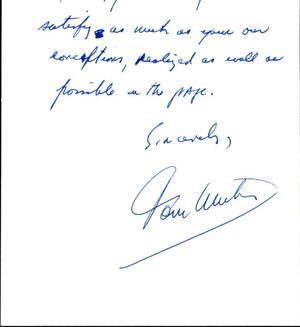 satisfy as much as your own
conceptions, realized as well as
possible on the page.
Sincerely,